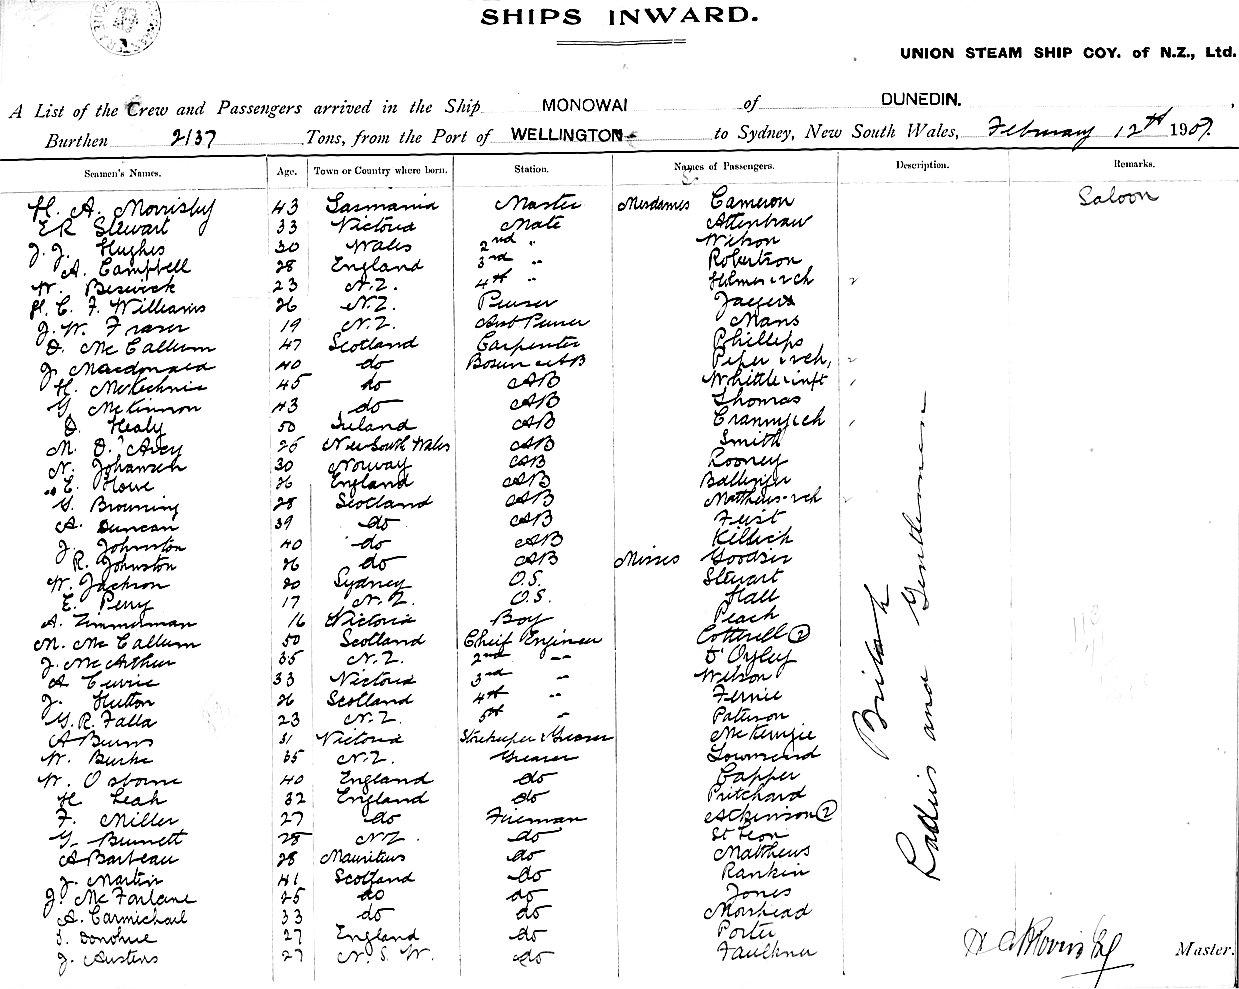 SHIPS INWARD.
UNION STEAM SHIP COY. of N.Z., Ltd.
A List of the Crew and Passengers arrived in the Ship MONOWAI of DUNEDIN.,
Burthen 2137 Tons, from the Port of WELLINGTON to Sydney, New South Wales, February 12th 1907.
Seamen's Names. Age. Town or Country where born. Station. Names of Passengers. Description. Remarks.
H. A. Morrisby 43 Tasmania Master Mesdames Cameron Saloon
E R Stewart 33 Victoria Mate Attenbraw
J. J. Hughes 30 Wales 2nd " Wilson
A. Campbell 28 England 3rd " Robertson
W. Beswick 23 N.Z. 4th " Holmes & ch
H. C. F. Williams 26 N.Z. Purser Jagers
J. W. Fraser 19 N.Z. Asst Purser Mans
D. McCallum 47 Scotland Carpenter Phillips
J. Macdonald 40 do Bosun & AB Piper & ch,
H. McKechnie 45 do AB Whittle & inft
G. McKinnon 43 do AB Thomas
D. Healy 50 Ireland AB Cranny & ch
M. D'Arcy 26 New South Wales AB Smith
N. Johansen 30 Norway AB Rooney
E. Howe 26 England AB Ballinger
G. Browning 28 Scotland AB Matthews & ch
A. Duncan 39 do AB Feist
J. Johnston 40 do AB Killick
R. Johnston 26 do AB Misses Goodsir
W. Jackson 20 Sydney O.S. Stewart
E. Perry 17 N.Z. O.S. Hall
A. Zimmerman 16 Victoria Boy Peach
M. McCallum 50 Scotland Chief Engineer Cotterell (2)
J. McArthur 35 N.Z. 2nd " D'Oyley
A Currie 33 Victoria 3rd " Wilson
J. Hutton 26 Scotland 4th " Fernie
G. R. Falla 23 N.Z. 5th " Paterson
A Burns 31 Victoria Storekeeper & Greaser McKenzie
W. Burke 35 N.Z. Greaser Townsend
W. Osborne 40 England do Capper
H Leah 32 England do Pritchard
F. Miller 27 do Fireman Atkinson (2)
G. Burnett 28 N.Z. do St Leon
A Barbeau 28 Mauritius do Matthews
J. Martin 41 Scotland do Rankin
J. McFarlane 25 do do Jones
A. Carmichael 33 do do Morshead
Donohue 27 England do Porter
J. Austens 27 N.S.W. do Faulkner
British
Ladies and Gentlemen
H A Morrisby Master.